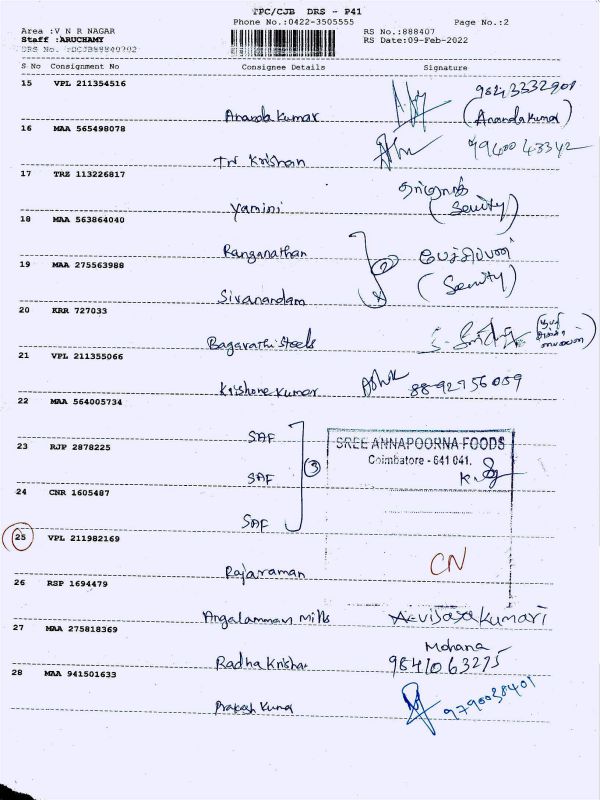 TPC/CJB DRS - P41
Phone No.:0422-3505555 Page No.:2
Area :V N R NAGAR RS No.:888407
Staff :ARUCHAMY RS Date:09-Feb-2022
DRS No. :DCJB88840702
S No Consignment No Consignee Details Signature
15 VPL 211354516
Ananda Kumar (Ananda Kumar)
16 MAA 565498078
TN Krishan
17 TRZ 113226817
Yamini (Security)
18 MAA 563864040
Ranganathan
19 MAA 275563988 2
Sivanandam (Security)
20 KRR 727033
Bagavathi Steels
21 VPL 211355066
Krishone Kumar
22 MAA 564005734
SAF
23 RJP 2878225 SREE ANNAPOORNA FOODS
Coimbatore - 641 041.
SAF 3
24 CNR 1605487
SAF
25 VPL 211982169
Rajaraman CN
26 RSP 1694479
Angalamman Mills
27 MAA 275818369
Mohana
Radha Krishan 9841063275
28 MAA 941501633
Prakash Kumar 9790038401